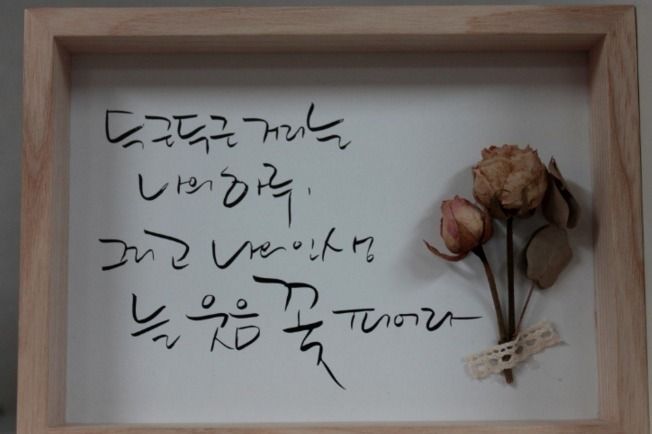 두근두근거리는
나의 하루,
그리고 나의 인생
늘 웃음꽃 피어라